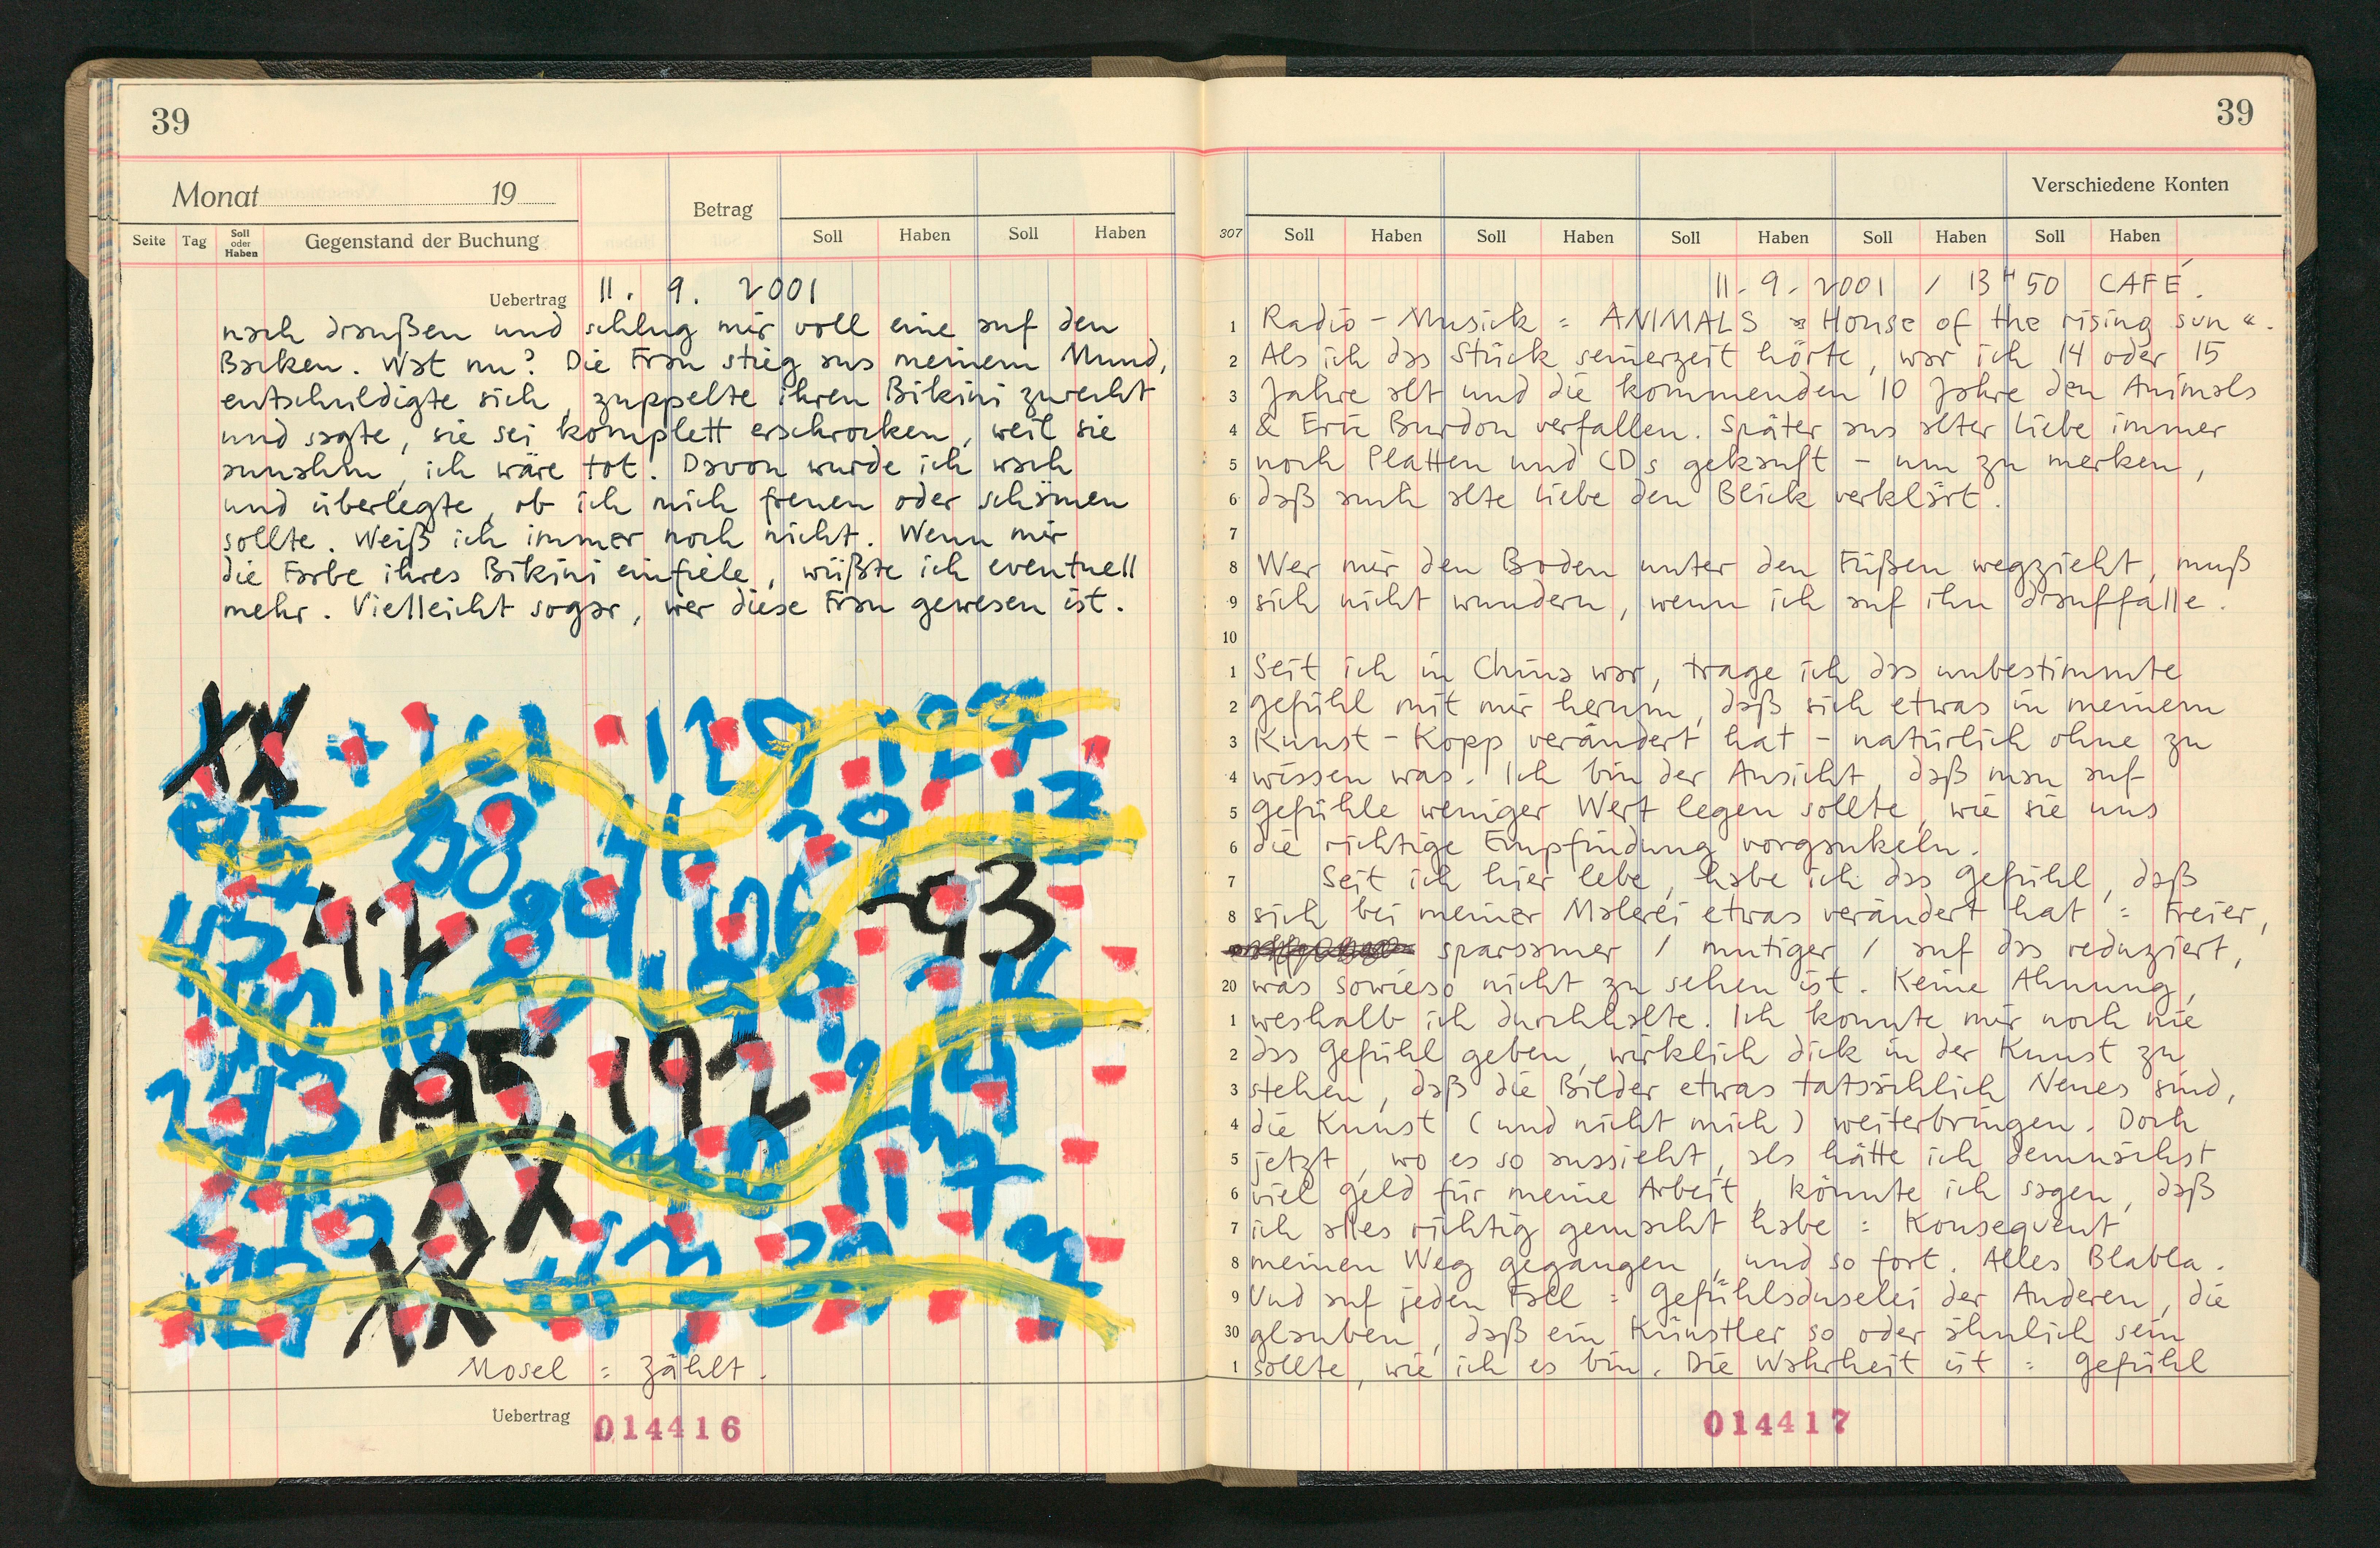 39
Monat 19
Betrag
Seite Tag Soll oder Haben Gegenstand der Buchung Soll Haben Soll Haben
Uebertrag 11. 9. 2001
nach draußen und schlug mir voll eine auf den
Backen. Wat nu? Die Frau stieg aus meinem Mund,
entschuldigte sich, zuppelte ihren Bikini zurecht
und sagte, sie sei komplett erschrocken, weil sie
annahm, ich wäre tot. Davon wurde ich wach
und überlegte, ob ich mich freuen oder schämen
sollte. Weiß ich immer noch nicht. Wenn mir
die Farbe ihres Bikini einfiele, wüßte ich eventuell
mehr. Vielleicht sogar, wer diese Frau gewesen ist.
XX + 101 129 127
88 96 20 12
45 42 89 106 -93
16
243 195, 192 214
XX 110 117
XX
Mosel = zählt.
Uebertrag 014416
39
Verschiedene Konten
307 Soll Haben Soll Haben Soll Haben Soll Haben Soll Haben
11.9.2001 / 13H50 CAFÉ.
1 Radio-Musick = ANIMALS » House of the rising sun «.
2 Als ich das Stück seinerzeit hörte, war ich 14 oder 15
3 Jahre alt und die kommenden 10 Jahre den Animals
4 & Eric Burdon verfallen. Später aus alter Liebe immer
5 noch Platten und CDs gekauft – um zu merken,
6 daß auch alte Liebe den Blick verklärt.
7
8 Wer mir den Boden unter den Füßen wegzieht, muß
9 sich nicht wundern, wenn ich auf ihn drauffalle.
10
1 Seit ich in China war, trage ich das unbestimmte
2 Gefühl mit mir herum, daß sich etwas in meinem
3 Kunst-Kopp verändert hat – natürlich ohne zu
4 wissen was. Ich bin der Ansicht, daß man auf
5 Gefühle weniger Wert legen sollte, wie sie uns
6 die richtige Empfindung vorgaukeln.
7 Seit ich hier lebe, habe ich das Gefühl, daß
8 sich bei meiner Malerei etwas verändert hat = Freier,
sparsamer / mutiger / auf das reduziert,
20 was sowieso nicht zu sehen ist. Keine Ahnung,
1 weshalb ich durchhalte. Ich konnte mir noch nie
2 das Gefühl geben, wirklich dick in der Kunst zu
3 stehen, daß die Bilder etwas tatsächlich Neues sind,
4 die Kunst (und nicht mich) weiterbringen. Doch
5 jetzt, wo es so aussieht, als hätte ich demnächst
6 viel Geld für meine Arbeit, könnte ich sagen, daß
7 ich alles richtig gemacht habe = Konsequent
8 meinen Weg gegangen, und so fort. Alles Blabla.
9 Und auf jeden Fall = Gefühlsduselei der Anderen, die
30 glauben, daß ein Künstler so oder ähnlich sein
1 sollte, wie ich es bin. Die Wahrheit ist = Gefühl
014417